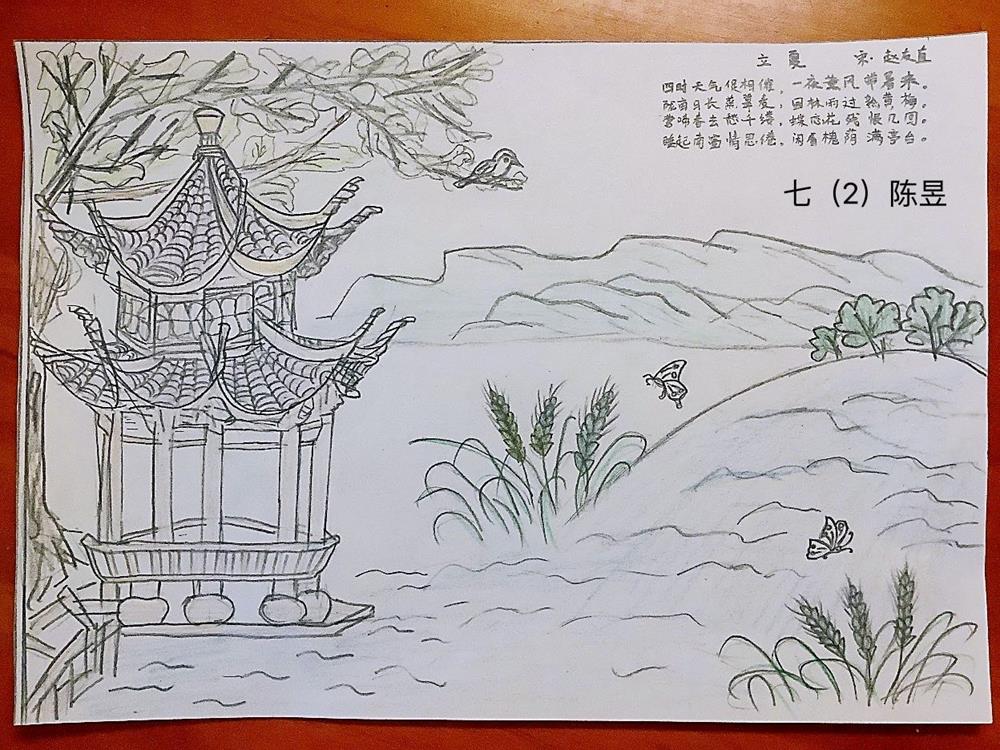 立夏 宋·赵友直
四时天气促相催，一夜薰风带暑来。
陇亩日长蒸翠麦，园林雨过熟黄梅。
莺啼春去愁千缕，蝶恋花残恨几回。
睡起南窗情思倦，闲看槐荫满亭台。
七（2）陈昱